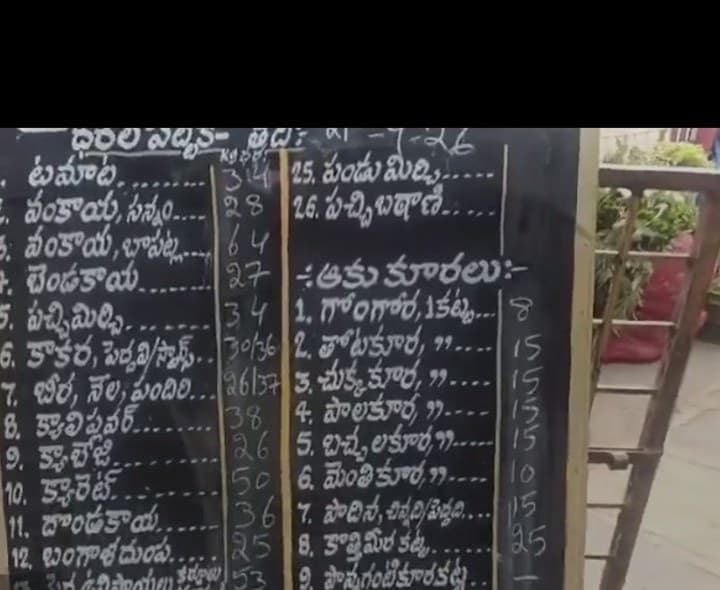 ధరల పట్టిక- తేది: 21-4-26
Kg ధర
1. టమాట......... 34
2. వంకాయ, సన్నం.... 28
3. వంకాయ, బాపట్ల.... 64
4. బెండకాయ....... 27
5. పచ్చిమిర్చి......... 34
6. కాకర, పెద్దవి/స్మాల్స్.. 30/36
7. బీర, నేల, పందిరి... 26/37
8. క్యాలిఫ్లవర్....... 38
9. క్యాబేజి......... 26
10. క్యారెట్......... 50
11. దొండకాయ...... 36
12. బంగాళదుంప..... 25
ఉల్లిపాయలు కర్నూలు 53
25. పండుమిర్చి.....
26. పచ్చిబఠాణి.....
-:ఆకు కూరలు:-
1. గోంగూర, 1కట్ట... 8
2. తోటకూర, ,,.... 15
3. చుక్కకూర, ,,.... 15
4. పాలకూర, ,,.... 15
5. బచ్చలకూర, ,,.... 15
6. మెంతికూర, ,,.... 10
7. పొదిన, చిన్నది/పెద్దది.... 15
8. కొత్తిమీర కట్ట...... 25
9. పొన్నగంటికూరకట్ట.. -